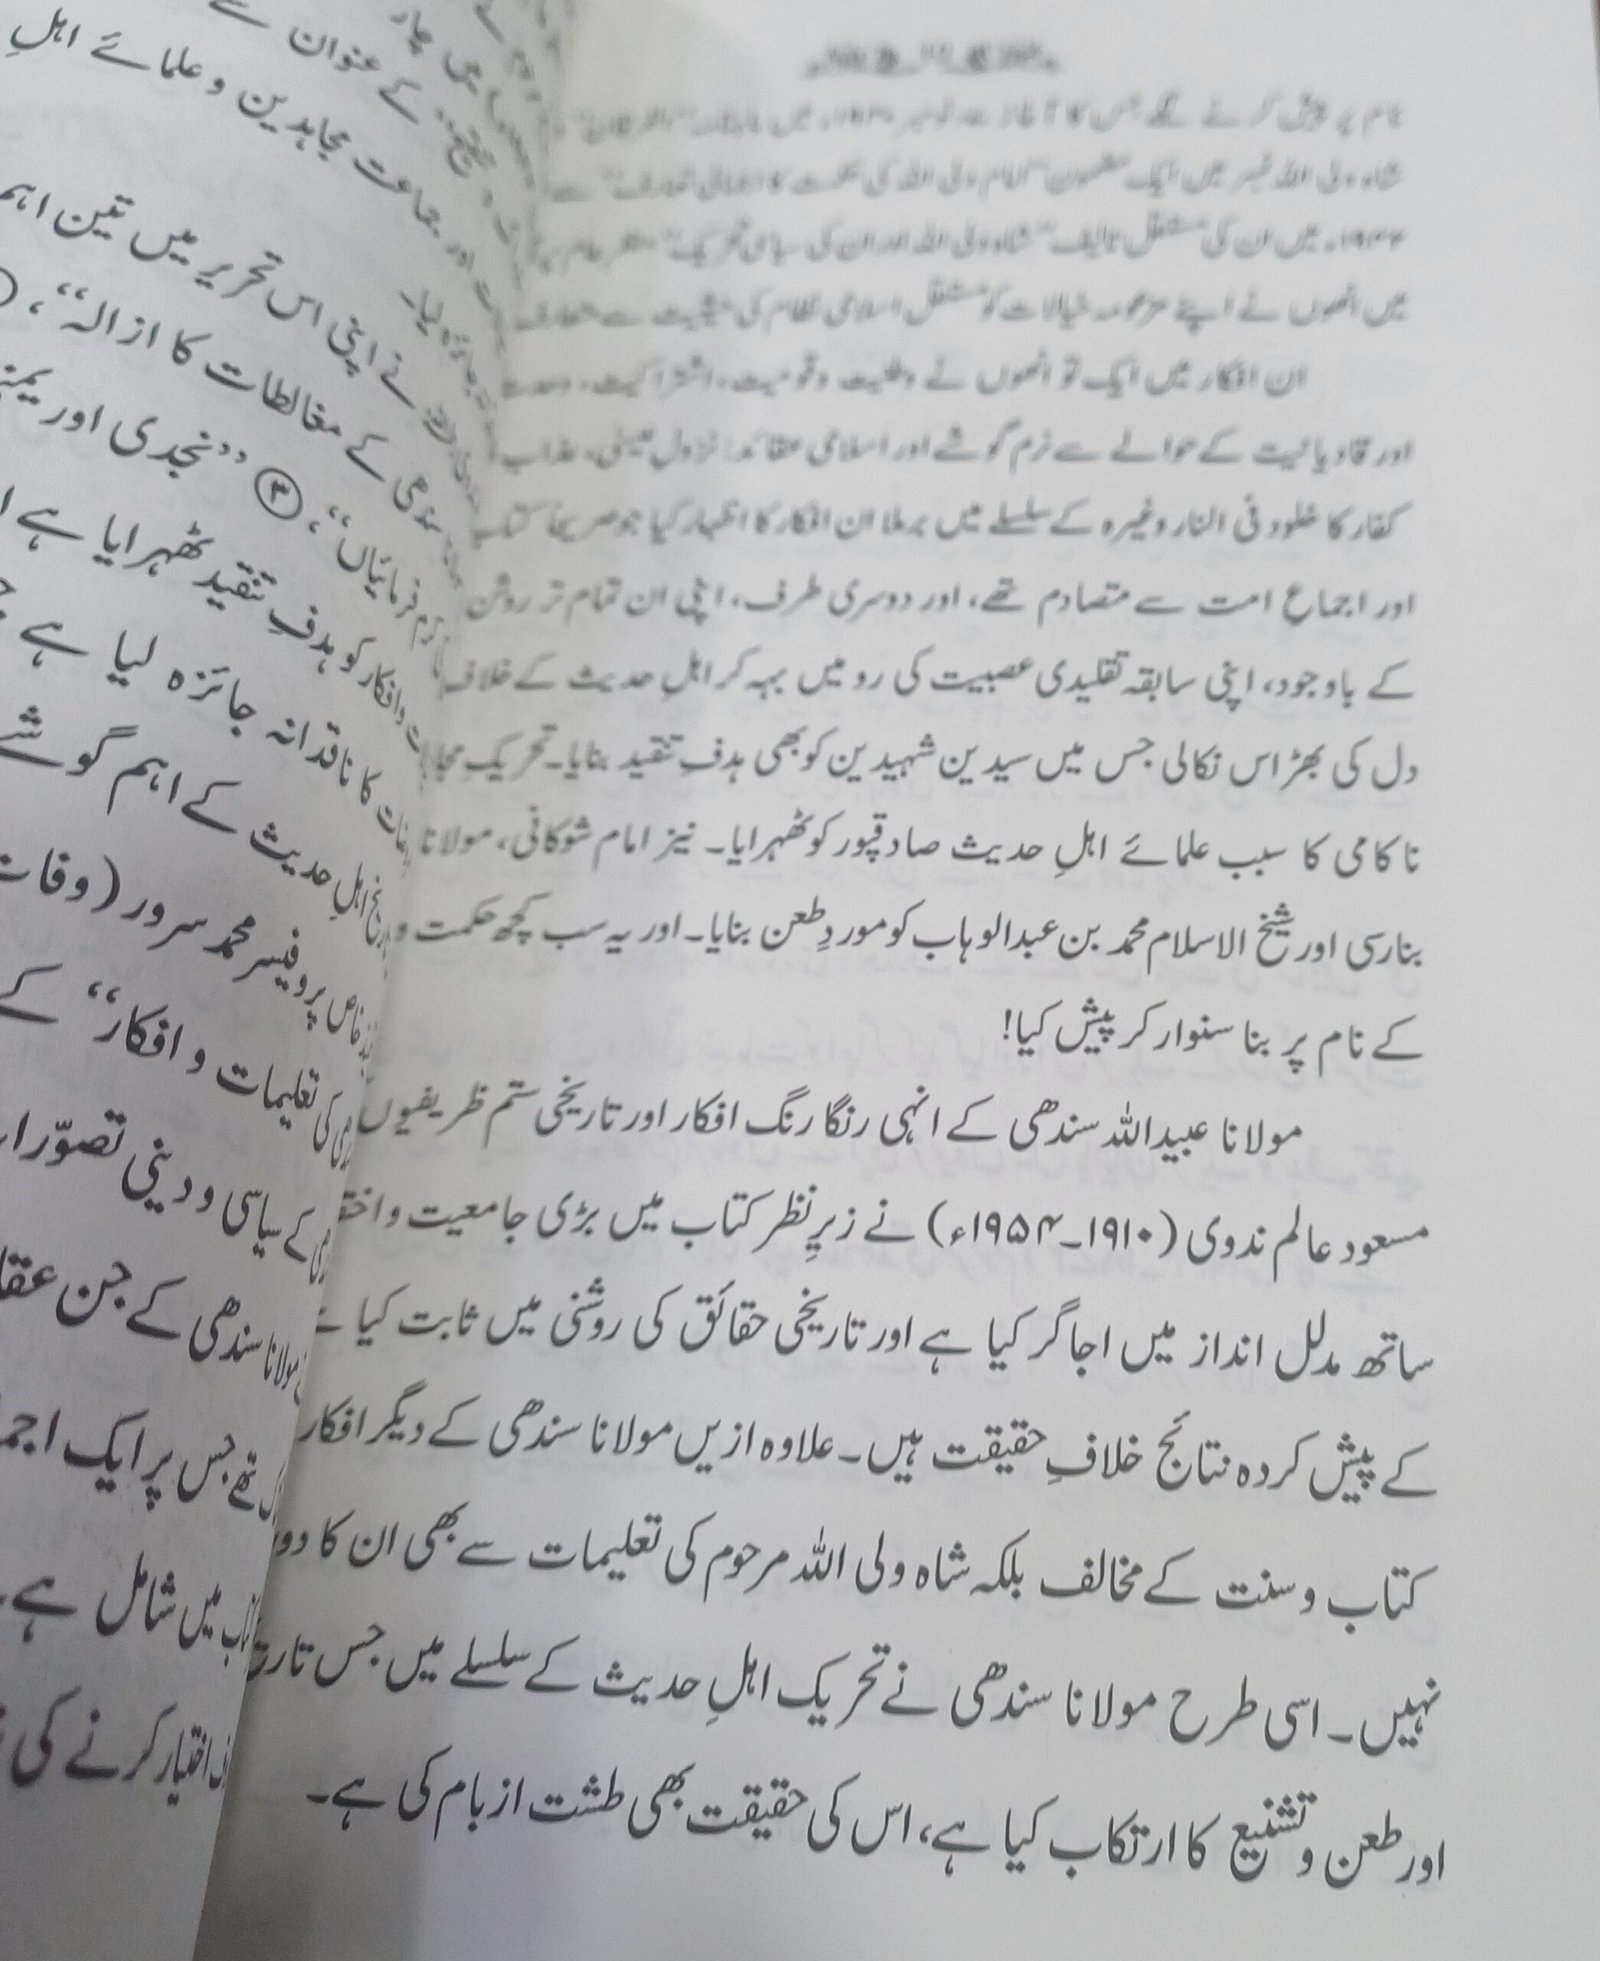 نام پر پیش کرنے لگے جس کا آغاز
شاہ ولی اللہ نمبر میں ایک مضمون "امام ولی اللہ کی حکمت کا اجمالی تعارف" سے
میں ان کی مستقل تالیف "شاہ ولی اللہ اور ان کی سیاسی تحریک" منظر عام پر
میں انھوں نے اپنے مزعومہ خیالات کو مستقل اسلامی نظام کی حیثیت سے متعارف
ان افکار میں ایک تو انھوں نے وطنیت و قومیت، اشتراکیت، وحدت
اور قادیانیت کے حوالے سے نرم گوشے اور اسلامی عقائد: نزولِ عیسیٰ، عذاب
کفار کا خلود فی النار وغیرہ کے سلسلے میں برملا ان افکار کا اظہار کیا جو صریحاً کتاب
اور اجماع امت سے متصادم تھے، اور دوسری طرف، اپنی ان تمام تر روشن
کے باوجود، اپنی سابقہ تقلیدی عصبیت کی رو میں بہہ کر اہلِ حدیث کے خلاف
دل کی بھڑاس نکالی جس میں سیدین شہیدین کو بھی ہدفِ تنقید بنایا۔ تحریکِ
ناکامی کا سبب علمائے اہلِ حدیث صادقپور کو ٹھہرایا۔ نیز امام شوکانی، مولانا
بنارسی اور شیخ الاسلام محمد بن عبدالوہاب کو موردِ طعن بنایا۔ اور یہ سب کچھ حکمت و
کے نام پر بنا سنوار کر پیش کیا!
مولانا عبیداللہ سندھی کے انہی رنگا رنگ افکار اور تاریخی ستم ظریفیوں
مسعود عالم ندوی (۱۹۱۰۔۱۹۵۴ء) نے زیرِ نظر کتاب میں بڑی جامعیت و
ساتھ مدلل انداز میں اجاگر کیا ہے اور تاریخی حقائق کی روشنی میں ثابت کیا
کے پیش کردہ نتائج خلافِ حقیقت ہیں۔ علاوہ ازیں مولانا سندھی کے دیگر افکار
کتاب و سنت کے مخالف بلکہ شاہ ولی اللہ مرحوم کی تعلیمات سے بھی ان کا
نہیں۔ اسی طرح مولانا سندھی نے تحریک اہلِ حدیث کے سلسلے میں جس
اور طعن و تشنیع کا ارتکاب کیا ہے، اس کی حقیقت بھی طشت از بام کی ہے۔
کے عنوان سے
اور جماعت مجاہدین و علمائے اہلِ
جائزہ لیا۔
نے اپنی اس تحریر میں تین اہم
سندھی کے مغالطات کا ازالہ"،
کرم فرمائیاں"، ③ "نجدی اور
وافکار کو ہدفِ تنقید ٹھہرایا ہے
کا ناقدانہ جائزہ لیا ہے
تاریخ اہلِ حدیث کے اہم گوشے
خاص پروفیسر محمد سرور (وفات
کی تعلیمات و افکار" کے
کے سیاسی و دینی
مولانا سندھی کے جن
تھے جس پر ایک
میں شامل ہے۔
اختیار کرنے کی